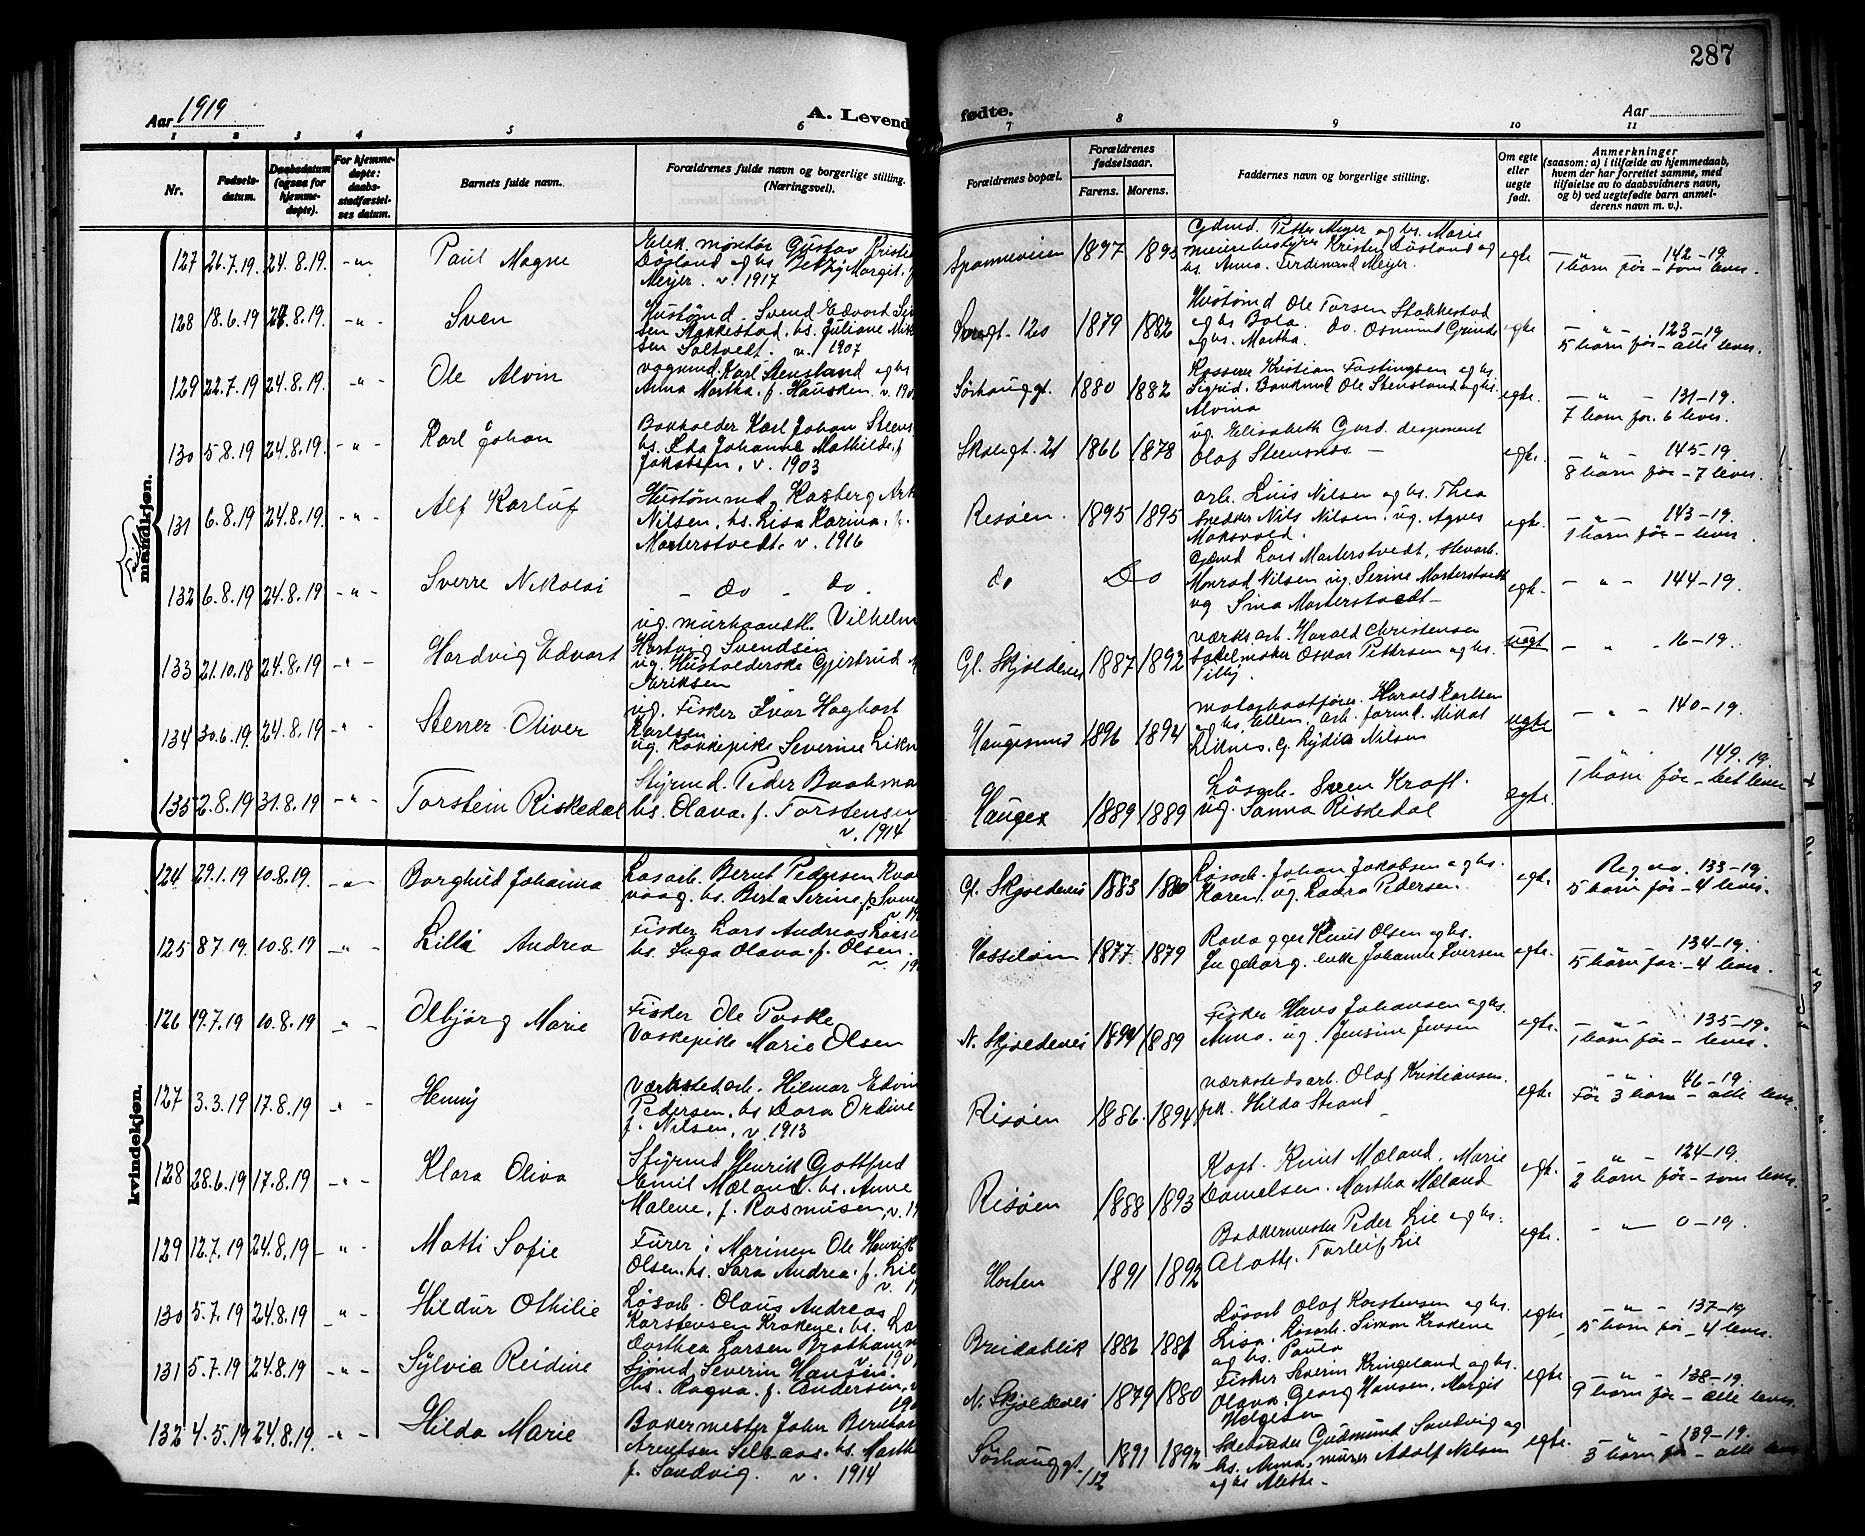 287
Aar 1919
A. Levend
fødte.
Aar
1 2 3 4 5 6 7 8 9 10 11
Nr.
Fødsels-
datum.
Daabsdatum
(ogsaa for
hjemme-
døpte).
For hjemme-
døpte:
daabs-
stadfæstel-
ses datum.
Barnets fulde navn.
Forældrenes fulde navn og borgerlige stilling.
(Næringsvei).
Forældrenes bopæl.
Forældrenes
fødselsaar.
Farens. Morens.
Faddernes navn og borgerlige stilling.
Om egte
eller
uegte
født.
Anmerkninger
(saasom: a) i tilfælde av hjemmedaab,
hvem der har forrettet samme, med
tilføielse av to daabsvidners navn,
og b) ved uegtefødte barn anmel-
derens navn m. v.).
mandkjøn.
127 26.7.19. 24.8.19. -"- Paul Magne
Elek. montør Gustav Kristia
Døsland og hs. Betzy Margit. f.
Meyer. v. 1917
Spanneveien 1897 1893
Gdmd. Petter Meyer og hs. Marie
meieribestyrer Kristen Døsland og
hs. Anna. Ferdinand Meyer.
egte
142-19.
1 barn før - som lever.
128 18.6.19 24.8.19. -"- Sven
Hustømd. Svend Edvart Siv
sen Stakkestad, hs. Juliane Mik
sen Saltvedt. v. 1907
1879 1882
Hustømd Ole Torsen Stakkestad
og hs Bola. do. Osmund Grinde
og hs. Martha.
egte
- " - 123-19.
5 barn før - alle lever.
129 22.7.19 24.8.19. -"- Ole Alvin
vognmd. Karl Stensland og hs
Anna Martha. f. Hausken. v. 190
Sørhauggt. 1880 1882
Kasserer Kristian Fastingsen og hs.
Sigrid. Bankmd Ole Stensland og hs.
Alvina
egte.
- " - 131-19.
7 barn før. 6 lever.
130 5.8.19 24.8.19. -"- Karl Johan
Bokholder Karl Johan Steens
hs. Eda Johanne Mathilde. f.
Jakobsen. v. 1903
Skolegt. 21 1866 1878
ug. Elisabeth Gard. disponent
Olaf Steensnæs -
egte.
- " - 145-19.
8 barn før - 7 lever.
131 6.8.19 24.8.19. -"- Alf Karluf
Hustømmd. Kasberg Ark
Nilsen. hs. Lisa Karina. f.
Marterstvedt. v. 1916
Risøen. 1895 1895
arb. Luis Nilsen og hs. Thea
Snedker Nils Nilsen. ug. Agnes
Moksvold.
egte.
- " - 143-19.
1 barn før - lever.
132 6.8.19 24.8.19. -"- Sverre Nikolai
- do - do.
do Do
Gdmd Lars Marterstvedt, stevarb.
Konrad Nilsen ug. Serine Marterstvedt
ug Sina Marterstvedt -
egt.
- " - 144-19.
133 21.10.18 24.8.19 -"- Hardvig Edvart
ug. murhaandtl. Vilhelm
Hartvig Svendsen
ug. Husholderske Gjertrud M
Eriksen
Gl. Skjoldevei 1887 1892
værksarb. Harald Christensen
Seilmaker Oskar Pettersen og hs.
Tilly.
uegt
- " - 16-19.
134 30.6.19. 24.8.19 -"- Stener Oliver
ug. Fisker Ivar Hagbart
Karlsen
ug. Kokkepike Severine Likn
Haugesund 1896 1894
motorbaatfører Harald Karlsen
og hs. Ellen. arb. formd. Mikal
Liknes. g. Lydia Nilsen
uegte
- " - 140-19.
135 2.8.19 31.8.19 -"- Torstein Riskedal
Styrmd. Peder Baahma
hs. Olava. f. Torstensen
v. 1914
Hauges 1889 1889
Løsarb. Sven Kraft.
ug. Sanna Riskedal
egte.
149.19.
1 barn før - det lever
kvindekjøn.
124 29.1.19 10.8.19. -"- Borghild Johanna
Løsarb. Bernt Pedersen Kva
vaag. hs. Berta Serine. f. Svend
v. 19
Gl. Skjoldevei 1883 1880
Løsarb. Johan Jakobsen og hs.
Karen. ug. Laura Pedersen.
egte.
Reg no. 133-19.
5 barn før - 4 lever.
125 8.7.19. 10.8.19 -"- Lilli Andrea
Fisker Lars Andreas Larse
hs. Inga Olava. f. Olsen.
v. 19
Hasseløen 1877 1879
Knut Olsen og hs.
Ingeborg. enke Johanne Iversen
egte.
- " - 134-19.
5 barn før - 4 lever.
126 19.7.19 10.8.19 -"- Olbjørg Marie
Fisker Ole Paske
Vaskepike Marie Olsen
N. Skjoldevei 1894 1889
Fisker Hans Johansen og hs.
Anna. ug. Jensine Jensen
egte.
- " - 135-19.
1 barn før - lever.
127 3.3.19 17.8.19 -"- Henny
Værkstedarb. Hilmar Edvin
Pedersen. hs Dora Ordine
f. Nilsen. v. 1913
Risøen 1886. 1894
værkstedsarb. Olaf Kristiansen.
frk. Hilda Strand -
egte.
- " - 46-19.
Før 3 barn - alle lever.
128 28.6.19 17.8.19 -"- Klara Oliva
Styrmd Henrik Gottfred
Emil Mæland. hs. Anne
Malene, f. Rasmusen, v. 19
Risøen 1888 1893
Kapt. Knut Mæland. Marie
Danielsen. Martha Mæland
egte.
- " - 124-19.
2 barn før - som lever.
129 12.7.19 24.8.19 -"- Matti Sofie
Furer i Marinen Ole Henrik
Olsen. hs. Sara Andrea. f. Lie
v. 19
Horten 1891 1892
Bakkermester Peder Lie og hs.
Alothe. Torleif Lie
egte.
- " - 0-19.
130 5.7.19 24.8.19 -"- Hildur Othilie
Løsarb. Olaus Andreas
Karstensen Krakene. hs. La
Dorthea Larsen Brathamm
v. 190
Breidablik 1886 1881
Løsarb Olaf Karstensen og hs.
Lisa. Løsarb. Simon Krakene
og hs. Paula
egte
- " - 137-19.
5 barn før - 4 lever.
131 5.7.19 24.8.19 -"- Sylvia Reidine
Sjømd. Severin Hansen.
hs. Ragna. f. Andersen, v.
190
N. Skjoldevei 1879 1880
Fisker Severin Kringeland og hs.
Olava. Georg Hansen, Margit
Helgesen
egte.
- " - 138-19.
9 barn før - alle lever.
132 4.5.19 24.8.19. -"- Hilda Marie
Bakermester John Bernhar
Arentsen Selbaas. hs. Marth
f. Sandvig. v. 1914
Sørhauggt. 1891 1892
112
Gudmund Sandvig og
hs. Anna, murer Adolf Nelson
og hs Alethe -
egte.
- " - 139-19.
3 barn før - alle lever